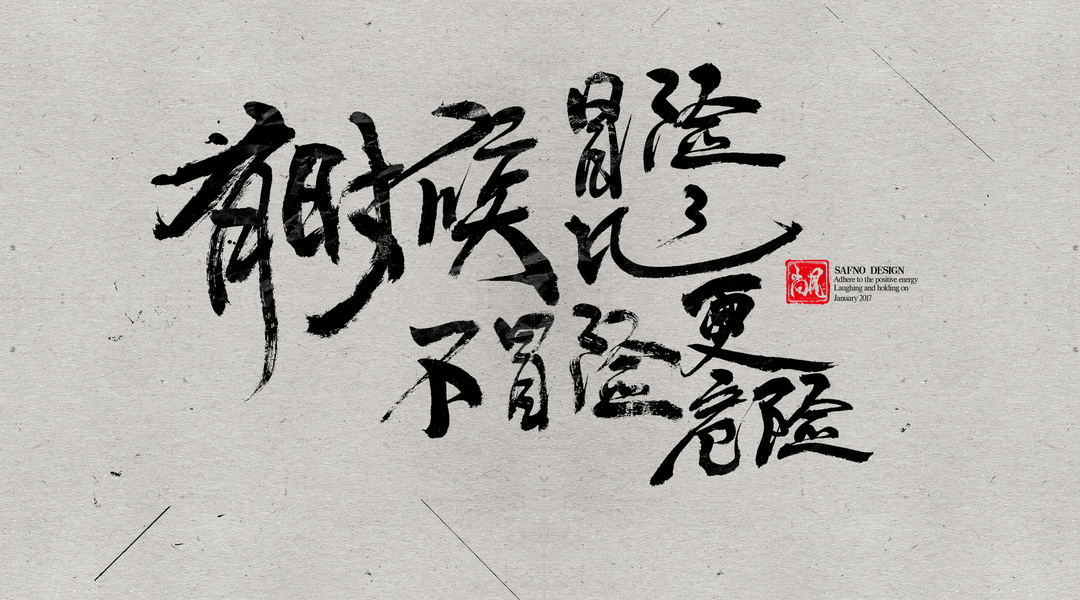 有时候
冒险
比
不冒险
更
危险
SAFNO DESIGN
Adhere to the positive energy
Laughing and holding on
January 2017